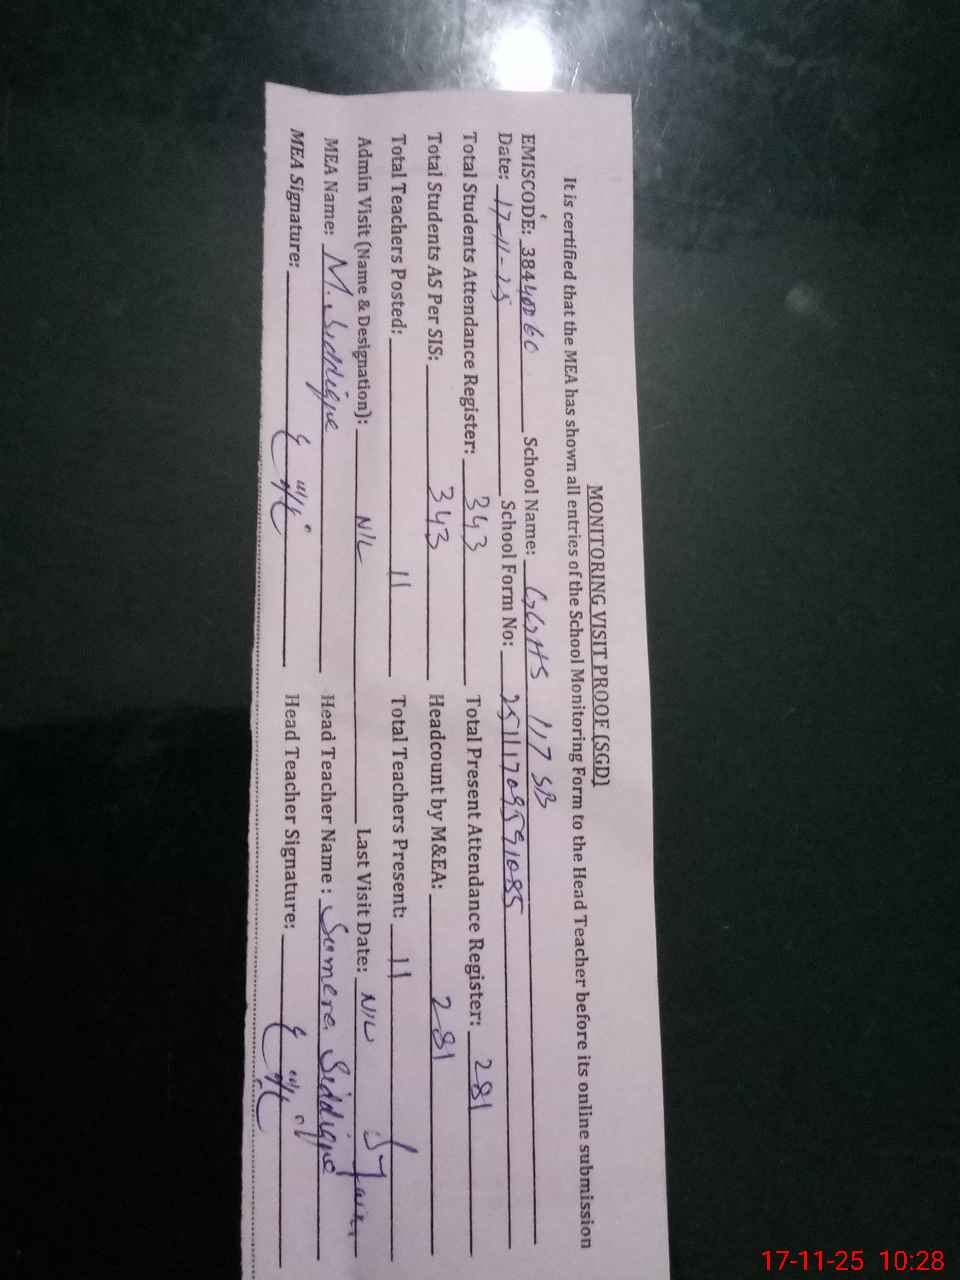 MONITORING VISIT PROOF (SGD)
It is certified that the MEA has shown all entries of the School Monitoring Form to the Head Teacher before its online submission
EMISCODE: 38440060 School Name: GGHS 117 SB
Date: 17-11-25 School Form No: 25111709591085
Total Students Attendance Register: 343 Total Present Attendance Register: 281
Total Students AS Per SIS: 343 Headcount by M&EA: 281
Total Teachers Posted: 11 Total Teachers Present: 11
Admin Visit (Name & Designation): NIL Last Visit Date: NIL
MEA Name: M. Siddique Head Teacher Name : Sumera Siddique
MEA Signature: Head Teacher Signature:
17-11-25 10:28